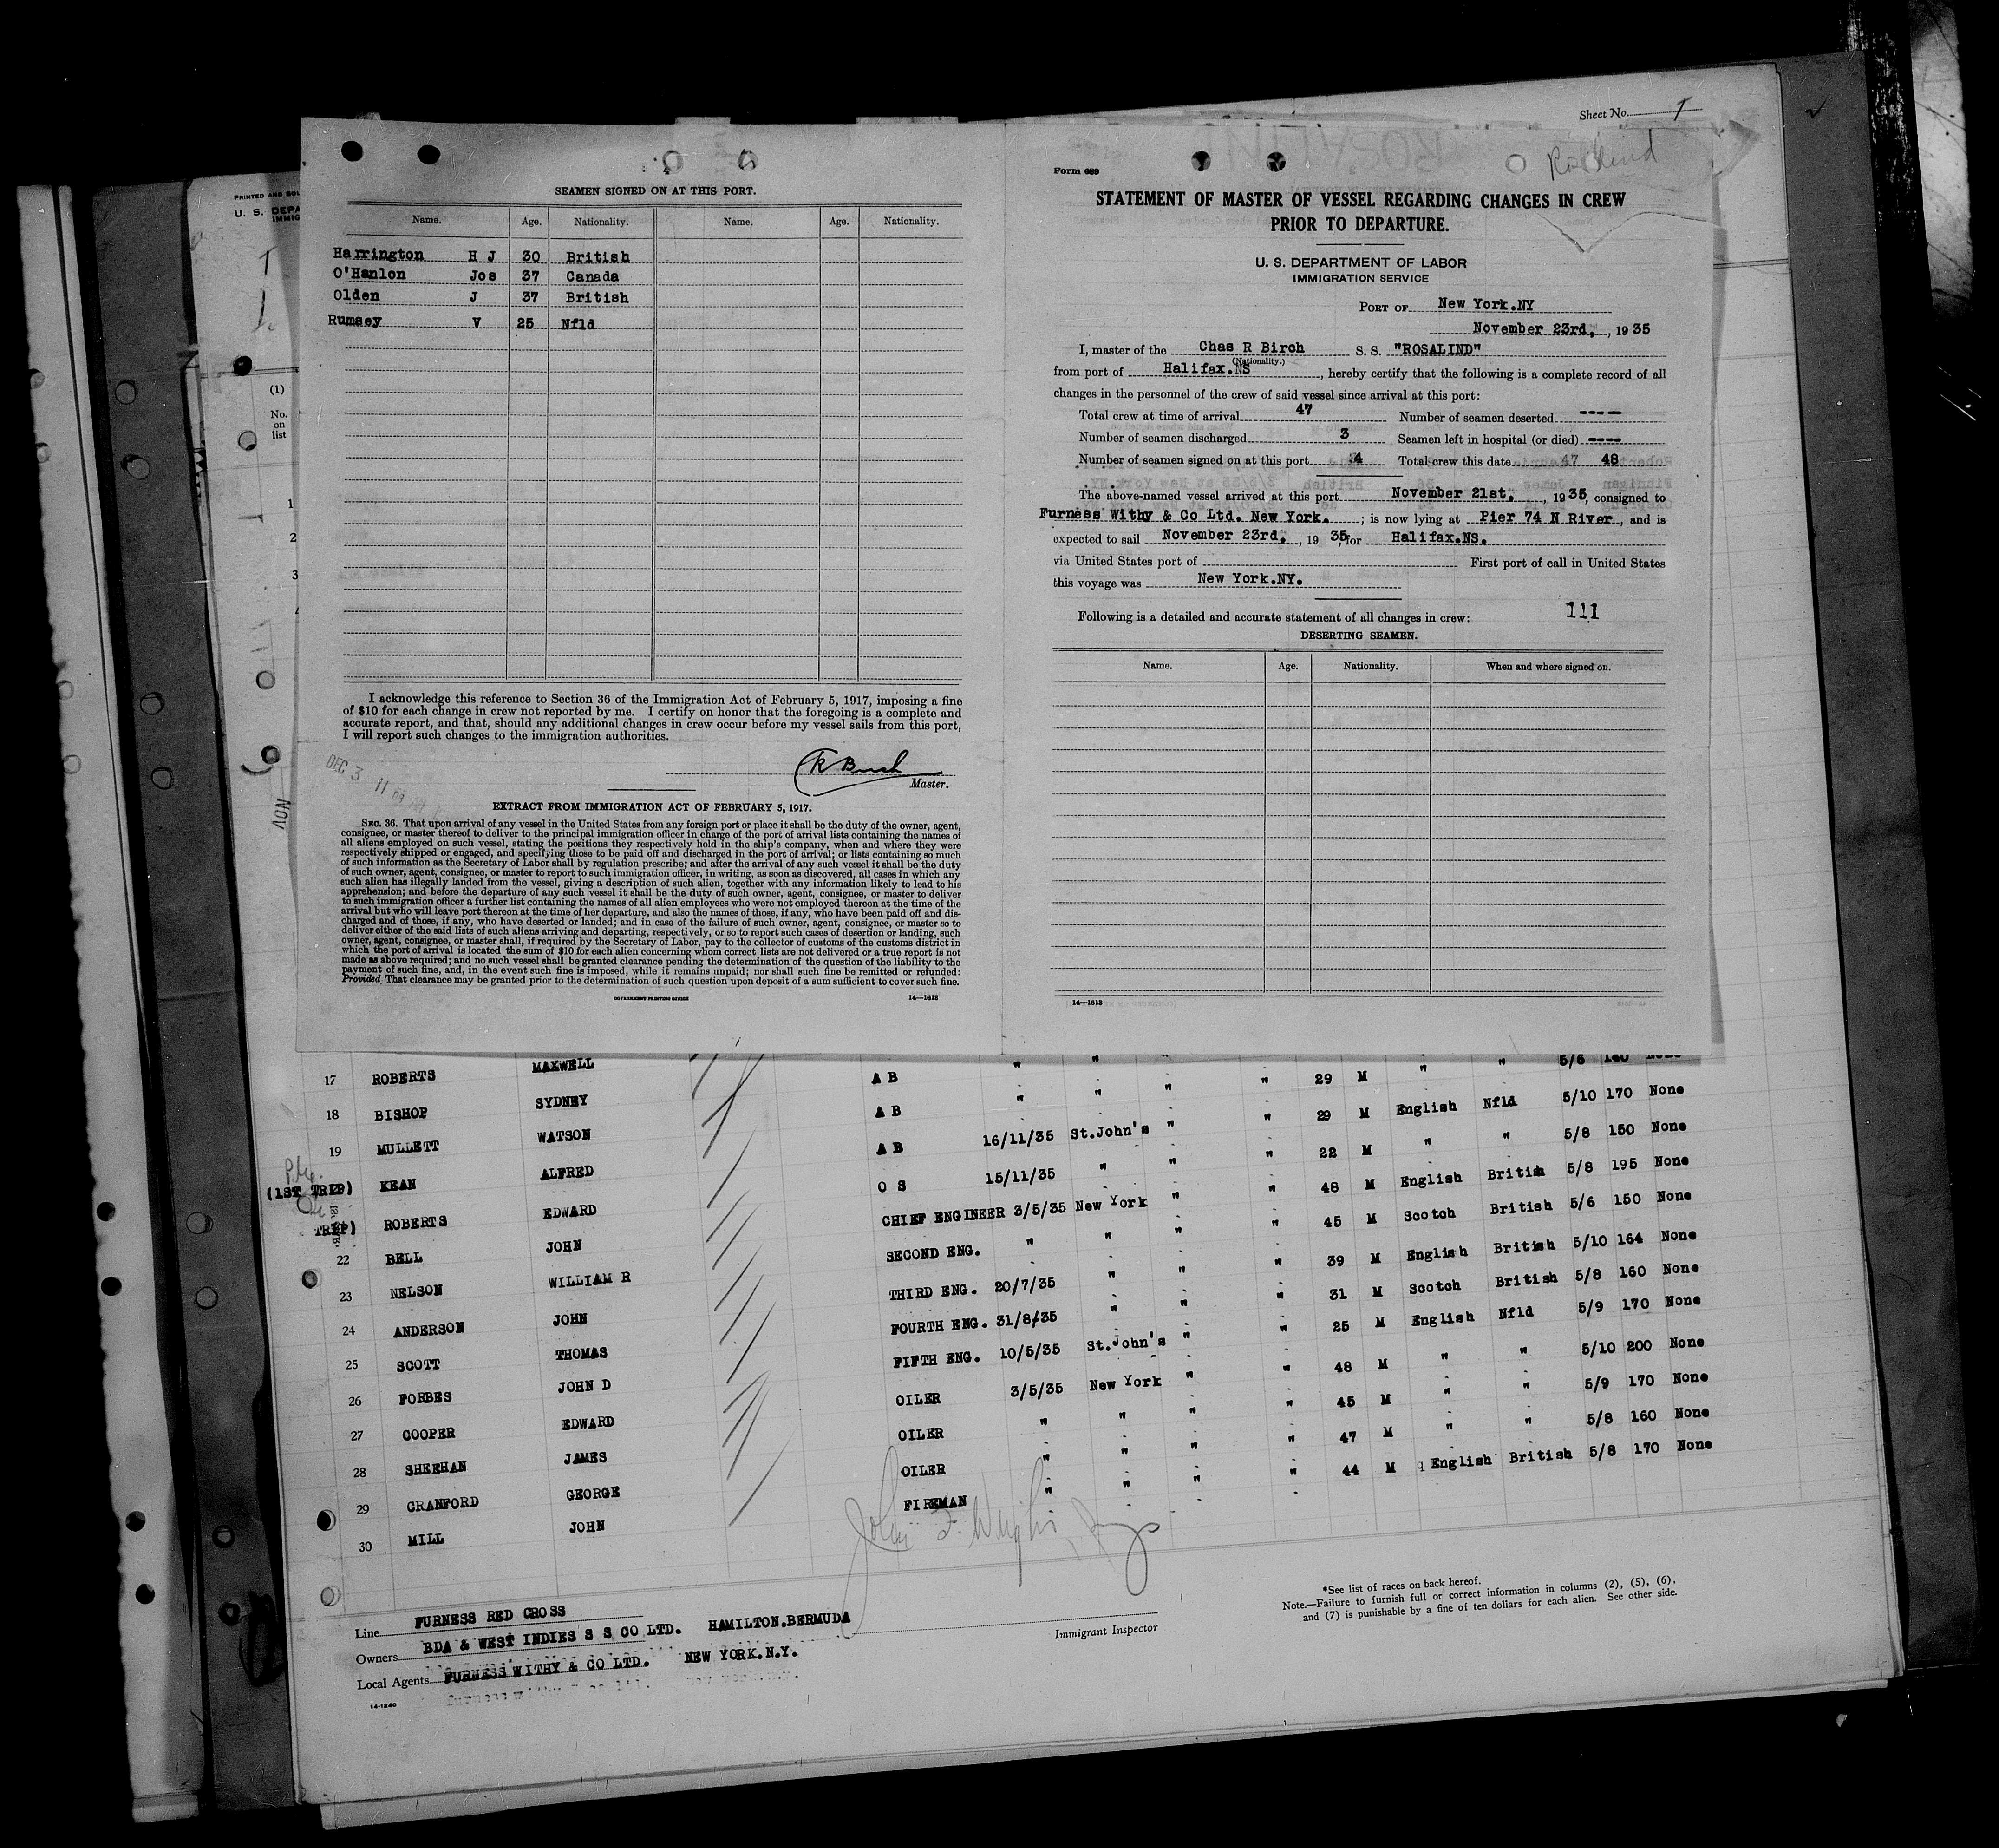 Sheet No. 1
Rosalind
SEAMEN SIGNED ON AT THIS PORT.
Name. Age. Nationality. Name. Age. Nationality.
Harrington H J 30 British
O'Hanlon Jos 37 Canada
Olden J 37 British
Rumsey V 25 Nfld
I acknowledge this reference to Section 36 of the Immigration Act of February 5, 1917, imposing a fine
of $10 for each change in crew not reported by me. I certify on honor that the foregoing is a complete and
accurate report, and that, should any additional changes in crew occur before my vessel sails from this port,
I will report such changes to the immigration authorities.
DEC 3 11
Master.
EXTRACT FROM IMMIGRATION ACT OF FEBRUARY 5, 1917.
SEC. 36. That upon arrival of any vessel in the United States from any foreign port or place it shall be the duty of the owner, agent,
consignee, or master thereof to deliver to the principal immigration officer in charge of the port of arrival lists containing the names of
all aliens employed on such vessel, stating the positions they respectively hold in the ship's company, when and where they were
respectively shipped or engaged, and specifying those to be paid off and discharged in the port of arrival; or lists containing so much
of such information as the Secretary of Labor shall by regulation prescribe; and after the arrival of any such vessel it shall be the duty
of such owner, agent, consignee, or master to report to such immigration officer, in writing, as soon as discovered, all cases in which any
such alien has illegally landed from the vessel, giving a description of such alien, together with any information likely to lead to his
apprehension; and before the departure of any such vessel it shall be the duty of such owner, agent, consignee, or master to deliver
to such immigration officer a further list containing the names of all alien employees who were not employed thereon at the time of the
arrival but who will leave port thereon at the time of her departure, and also the names of those, if any, who have been paid off and dis-
charged and of those, if any, who have deserted or landed; and in case of the failure of such owner, agent, consignee, or master so to
deliver either of the said lists of such aliens arriving and departing, respectively, or so to report such cases of desertion or landing, such
owner, agent, consignee, or master shall, if required by the Secretary of Labor, pay to the collector of customs of the customs district in
which the port of arrival is located the sum of $10 for each alien concerning whom correct lists are not delivered or a true report is not
made as above required; and no such vessel shall be granted clearance pending the determination of the question of the liability to the
payment of such fine, and, in the event such fine is imposed, while it remains unpaid; nor shall such fine be remitted or refunded:
Provided That clearance may be granted prior to the determination of such question upon deposit of a sum sufficient to cover such fine.
GOVERNMENT PRINTING OFFICE 14—1613
Form 689
STATEMENT OF MASTER OF VESSEL REGARDING CHANGES IN CREW
PRIOR TO DEPARTURE.
U. S. DEPARTMENT OF LABOR
IMMIGRATION SERVICE
PORT OF New York.NY
November 23rd. , 19 35
I, master of the Chas R Birch S. S. "ROSALIND"
(Nationality.)
from port of Halifax.NS , hereby certify that the following is a complete record of all
changes in the personnel of the crew of said vessel since arrival at this port:
Total crew at time of arrival 47 Number of seamen deserted ----
Number of seamen discharged 3 Seamen left in hospital (or died) ----
Number of seamen signed on at this port 4 Total crew this date 47 48
The above-named vessel arrived at this port November 21st. , 19 35, consigned to
Furness Withy & Co Ltd. New York. ; is now lying at Pier 74 N River , and is
expected to sail November 23rd. , 19 35, for Halifax.NS.
via United States port of First port of call in United States
this voyage was New York.NY.
111
Following is a detailed and accurate statement of all changes in crew:
DESERTING SEAMEN.
Name. Age. Nationality. When and where signed on.
14—1613
PRINTED AND
U. S. DEPA
IMMIG
(1)
No.
on
list
1
2
3
NOV
MAXWELL " " " 5/6 140 None
17 ROBERTS SYDNEY A B " " " " 29 M " " 5/10 170 None
18 BISHOP WATSON A B 16/11/35 St.John's " " 29 M English Nfld 5/8 150 None
19 MULLETT ALFRED A B 15/11/35 " " " 22 M " " 5/8 195 None
(1ST TRIP) KEAN EDWARD O S 3/5/35 New York " " 48 M English British 5/6 150 None
TRIP) ROBERTS JOHN CHIEF ENGINEER " " " " 45 M Scotch British 5/10 164 None
22 BELL WILLIAM R SECOND ENG. 20/7/35 " " " 39 M English British 5/8 160 None
23 NELSON JOHN THIRD ENG. 31/8/35 " " " 31 M Scotch British 5/9 170 None
24 ANDERSON THOMAS FOURTH ENG. 10/5/35 St.John's " " 25 M English Nfld 5/10 200 None
25 SCOTT JOHN D FIFTH ENG. 3/5/35 New York " " 48 M " " 5/9 170 None
26 FORBES EDWARD OILER " " " " 45 M " " 5/8 160 None
27 COOPER JAMES OILER " " " " 47 M " " 5/8 170 None
28 SHEEHAN GEORGE OILER " " " " 44 M English British
29 CRANFORD JOHN FIREMAN
30 MILL
*See list of races on back hereof.
Note.—Failure to furnish full or correct information in columns (2), (5), (6),
and (7) is punishable by a fine of ten dollars for each alien. See other side.
Line FURNESS RED CROSS
Owners BDA & WEST INDIES S S CO LTD. HAMILTON.BERMUDA
Immigrant Inspector
Local Agents FURNESS WITHY & CO LTD. NEW YORK.N.Y.
14-1240